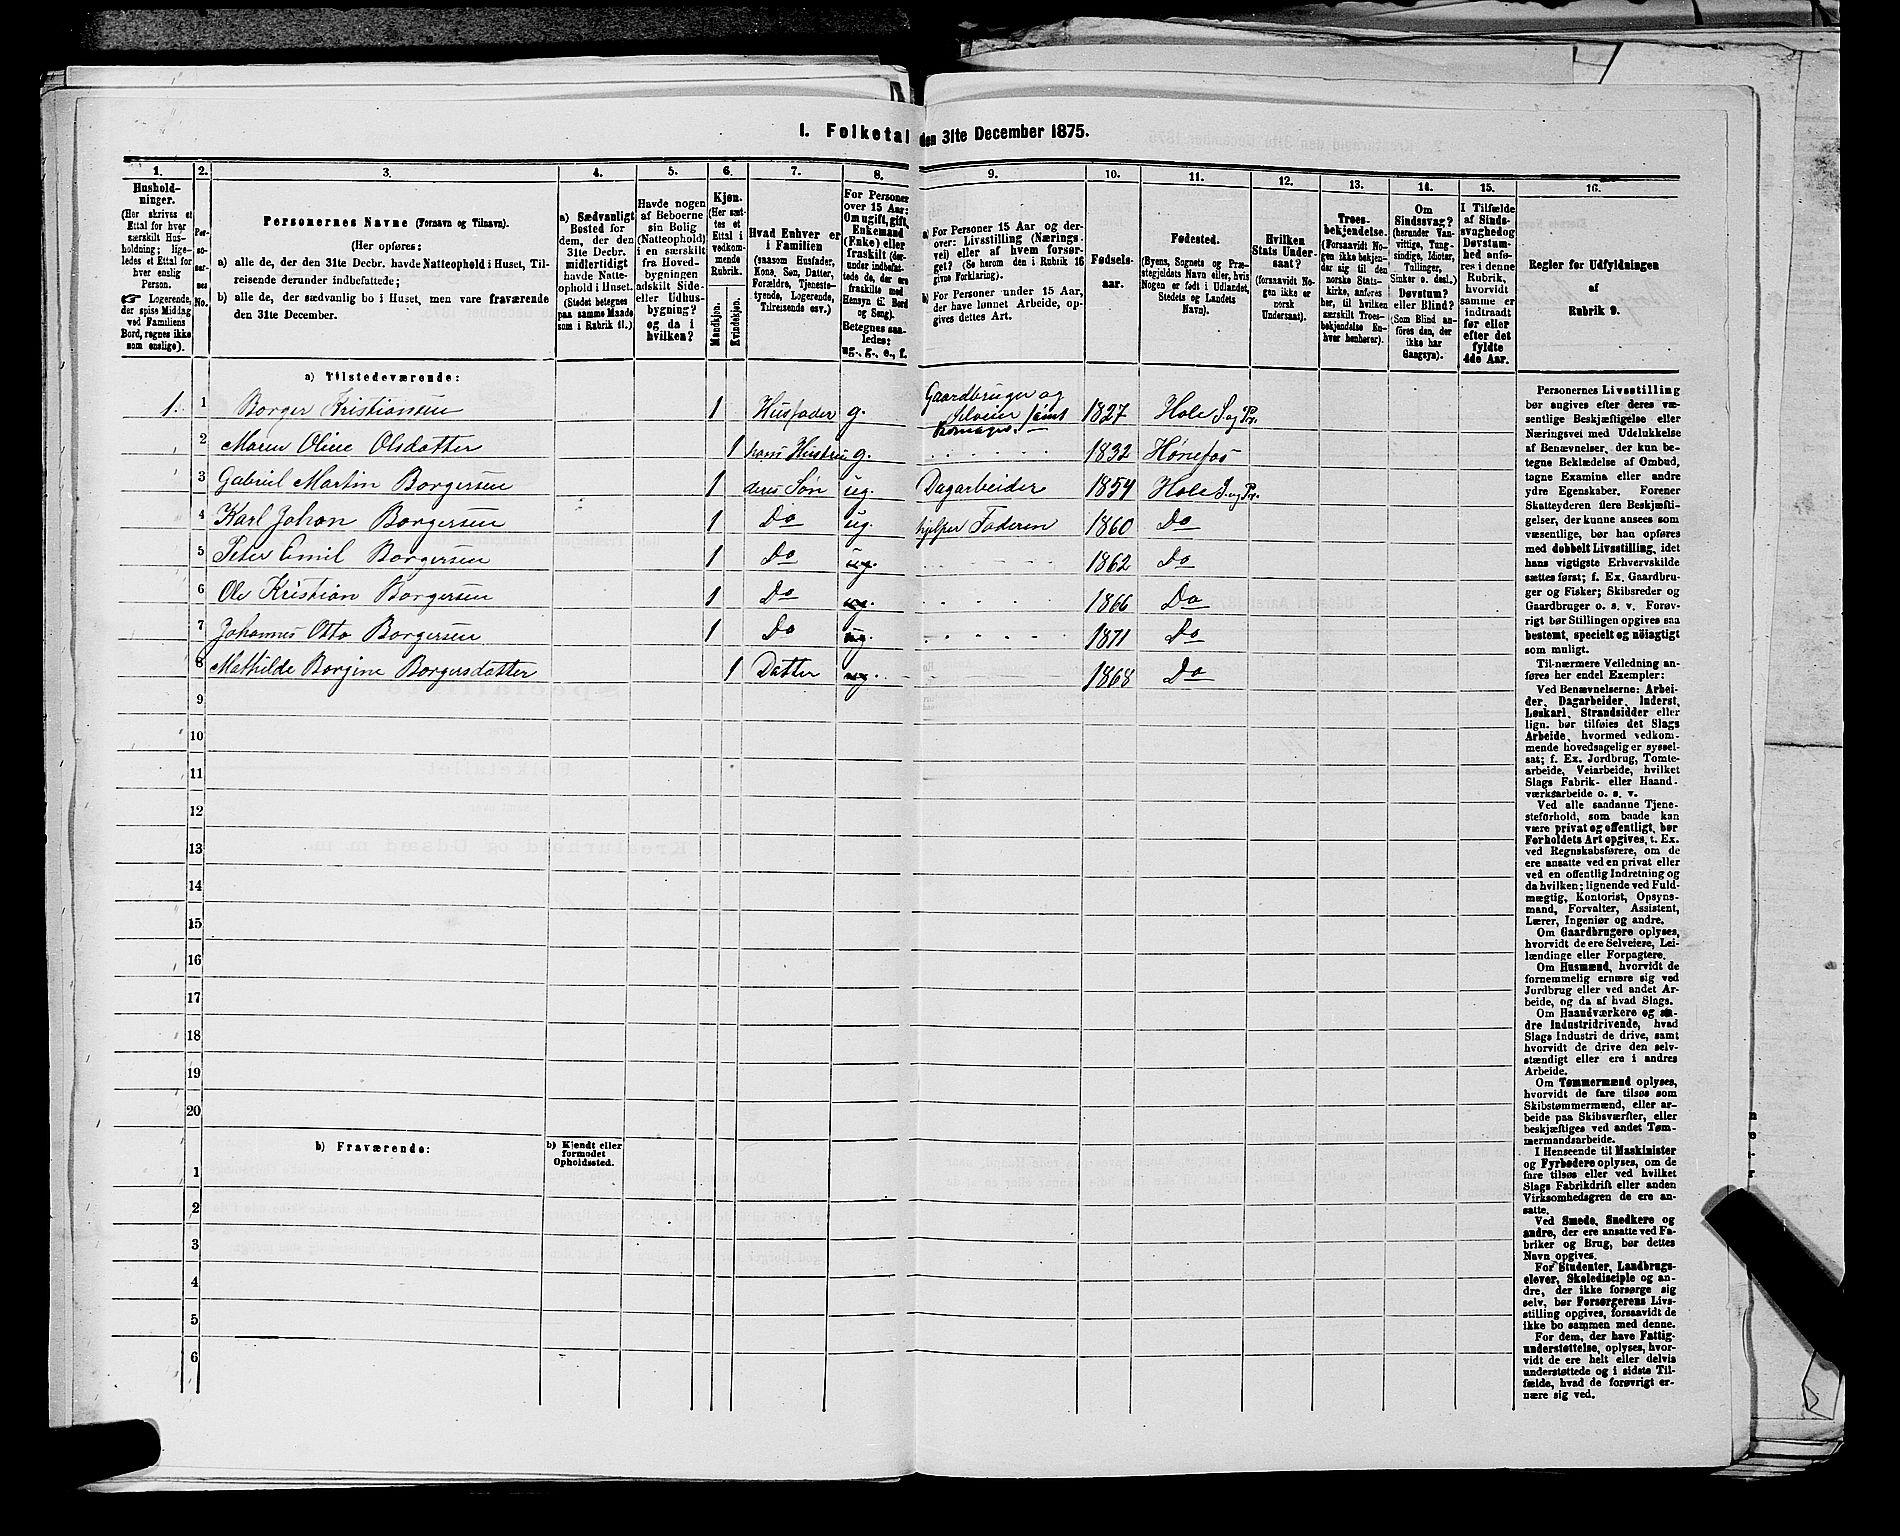 1. Folketal den 31te December 1875.
1.
Hushold-
ninger.
(Her skrives et
Ettal for hver
særskilt Hus-
holdning; lige-
ledes et Ettal for
hver enslig
Person.
Logerende,
der spise Middag
ved Familiens
Bord, regnes ikke
som enslige).
2.
Per-
so-
ner-
nes
No.
3.
Personernes Navne (Fornavn og Tilnavn).
(Her opføres:
a) alle de, der den 31te Decbr. havde Natteophold i Huset, Til-
reisende derunder indbefattede;
b) alle de, der sædvanlig bo i Huset, men vare fraværende
den 31te December.
4.
a) Sædvanligt
Bosted for
dem, der den
31te Decbr.
midlertidigt
havde Natte-
ophold i Huset.
(Stedet betegnes
paa samme Maade
som i Rubrik 11.)
5.
Havde nogen
af Beboerne
sin Bolig
(Natteophold)
i en særskilt
fra Hoved-
bygningen
adskilt Side-
eller Udhus-
bygning?
og da i
hvilken?
6.
Kjøn.
(Her sæt-
tes et
Ettal i
vedkom-
mende
Rubrik.
Mandkjøn.
Kvindekjøn.
7.
Hvad Enhver er
i Familien
(saasom Husfader,
Kone, Søn, Datter,
Forældre, Tjeneste-
tyende, Logerende,
Tilreisende osv.)
8.
For Personer
over 15 Aar:
Om ugift, gift,
Enkemand
(Enke) eller
fraskilt (der-
under indbefat-
tede de, der ere
fraskilte med
Hensyn til Bord
og Seng).
Betegnes saa-
ledes:
ug., g., e., f.
9.
a) For Personer 15 Aar og der-
over: Livsstilling (Nærings-
vei) eller af hvem forsør-
get? (Se herom den i Rubrik 16
givne Forklaring).
b) For Personer under 15 Aar,
der have lønnet Arbeide, op-
gives dettes Art.
10.
Fødsels-
aar.
11.
Fødested.
(Byens, Sognets og Præ-
stegjeldets Navn eller, hvis
Nogen er født i Udlandet,
Stedets og Landets
Navn).
12.
Hvilken
Stats Under-
saat?
(forsaavidt No-
gen ikke er
norsk
Undersaat).
13.
Troes-
bekjendelse.
(Forsaavidt No-
gen ikke bekjen-
der sig til den
norske Stats-
kirke, anføres
her, til hvilken
særskilt Troes-
bekjendelse En-
hver henhører).
14.
Om
Sindssvag?
(herunder Van-
vittige, Tung-
sindige, Idioter,
Tullinger,
Sinker o. desl.)
Døvstum?
eller Blind?
(Som Blind an-
føres den, der
ikke har
Gangsyn).
15.
I Tilfælde
af Sinds-
svaghed og
Døvstum-
hed anfø-
res i denne
Rubrik,
hvorvidt
samme er
indtraadt
før eller
efter det
fyldte
4de Aar.
16.
Regler for Udfyldningen
af
Rubrik 9.
a) Tilstedeværende:
1. 1 Borger Kristiansen 1 Husfader g. Gaardbruger og Selveier samt 1827 Hole S. og Pr.
2 Maren Oline Olsdatter 1 hans Hustru g. 1832 Hønefos
3 Gabriel Martin Borgersen 1 deres Søn ug. Dagarbeider 1854 Hole S. og Pr.
4 Karl Johan Borgersen 1 Do ug. hjelper Faderen 1860 Do
5 Peter Emil Borgersen 1 Do ug. 1862 Do
6 Ole Kristian Borgersen 1 Do ug. 1866 Do
7 Johannes Otto Borgersen 1 Do ug. 1871 Do
8 Mathilde Borgine Borgersdatter 1 Datter ug. 1868 Do
9
10
11
12
13
14
15
16
17
18
19
20
b) Fraværende:
b) Kjendt eller
formodet
Opholdssted.
1
2
3
4
5
6
Personernes Livsstilling
bør angives efter deres væ-
sentlige Beskjæftigelse eller
Næringsvei med Udelukkelse
af Benævnelser, der kun be-
tegne Beklædelse af Ombud,
tagne Examina eller andre
ydre Egenskaber. Forener
Skatteyderen flere Beskjæfti-
gelser, der kunne ansees som
væsentlige, bør han opføres
med dobbelt Livsstilling, idet
hans vigtigste Erhvervskilde
sættes først; f. Ex. Gaardbru-
ger og Fisker; Skibsreder og
Gaardbruger o. s. v. Forøv-
rigt bør Stillingen opgives saa
bestemt, specielt og nøiagtigt
som muligt.
Til nærmere Veiledning an-
føres her endel Exempler:
Ved Benævnelserne: Arbei-
der, Dagarbeider, Inderst,
Løskarl, Strandsidder eller
lign. bør tilføies det Slags
Arbeide, hvormed vedkom-
mende hovedsagelig er syssel-
sat; f. Ex. Jordbrug, Tomte-
arbeide, Veiarbeide, hvilket
Slags Fabrik- eller Haand-
værksarbeide o. s. v.
Ved alle saadanne Tjene-
steforhold, som baade kan
være privat og offentligt, bør
Forholdets Art opgives, t. Ex.
ved Regnskabsførere, om de
ere ansatte ved en privat eller
ved en offentlig Indretning og
da hvilken; lignende ved Fuld-
mægtig, Kontorist, Opsyns-
mand, Forvalter, Assistent,
Lærer, Ingeniør og andre.
Om Gaardbrugere oplyses,
hvorvidt de ere Selveiere, Lei-
lændinge eller Forpagtere.
Om Husmænd, hvorvidt de
fornemmelig ernære sig ved
Jordbrug eller ved andet Ar-
beide, og da af hvad Slags.
Om Haandværkere og an-
dre Industridrivende, hvad
Slags Industri de drive, samt
hvorvidt de drive den selv-
stændigt eller ere i andres
Arbeide.
Om Tømmermænd oplyses,
hvorvidt de fare tilsøs som
Skibstømmermænd, eller ar-
beide paa Skibsværfter, eller
beskjæftiges ved andet Tøm-
mermandsarbeide.
I Henseende til Maskinister
og Fyrbødere oplyses, om de
fare tilsøs eller ved hvilket
Slags Fabrikdrift eller anden
Virksomhedsgren de ere an-
satte.
Ved Smede, Snedkere og
andre, der ere ansatte ved Fa-
briker og Brug, bør dettes
Navn opgives.
For Studenter, Landbrugs-
elever, Skoledisciple og an-
dre, der ikke forsørge sig
selv, bør Forsørgerens Livs-
stilling opgives, forsaavidt de
ikke bo sammen med denne.
For dem, der have Fattig-
understøttelse, oplyses, hvor-
vidt de ere helt eller delvis
understøttede og i sidste Til-
fælde, hvad de forøvrigt er-
nære sig ved.